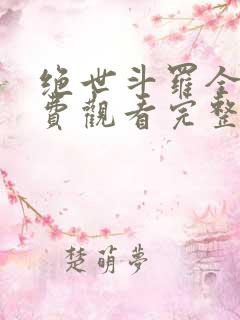 绝世斗罗全
費觀看完整
楚萌夢